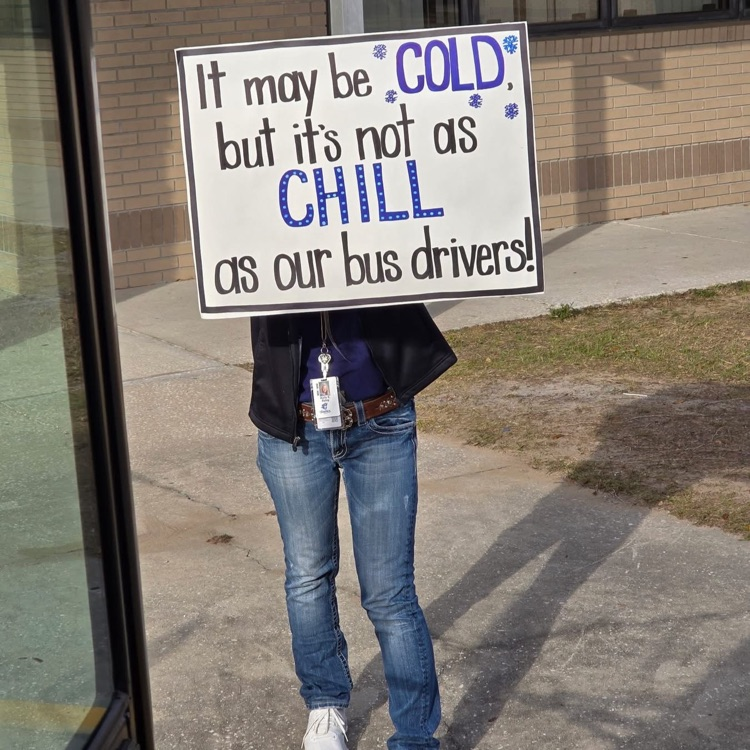 It may be COLD,
but it's not as
CHILL
as our bus drivers!